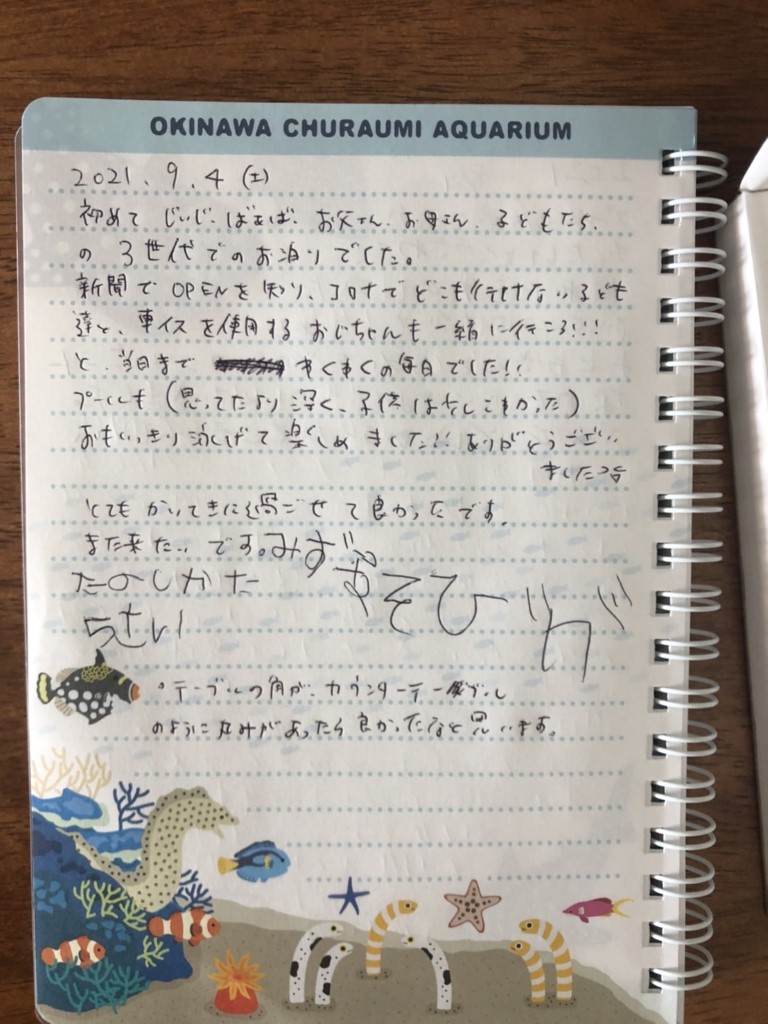 OKINAWA CHURAUMI AQUARIUM
2021.9.4(土)
初めて じぃじ、ばぁば、お父さん、お母さん、子どもたち、
の 3世代でのお泊りでした。
新聞で OPENを知り、コロナでどこも行けない子ども
達と、車イスを使用する おじちゃんも一緒に行ころ!!!
と、当日まで わくわくの毎日でした!!
プールも(思ってたより深く、子供は少しこわかった)
おもいっきり泳げて楽しめました!! ありがとうござい
ました
とても かいてきに過ごせて良かったです。
また来たいです。みず
あそびが
たのしかた
5さい
・テーブルの角が、カウンターテーブル
のように丸みがあったら良かったなと思います。